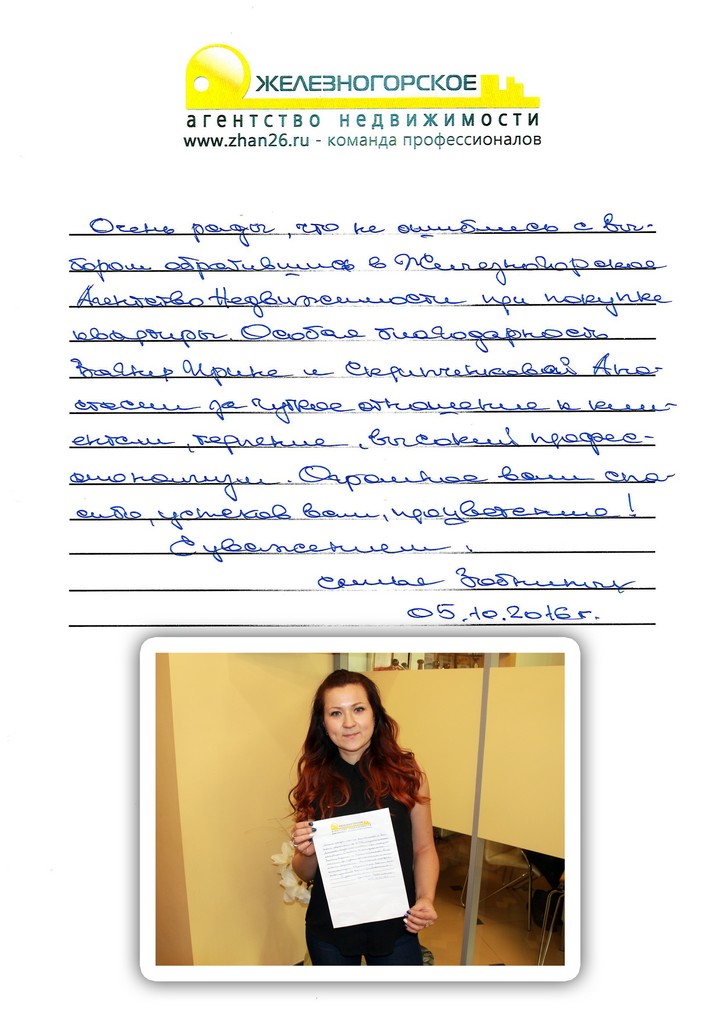 ЖЕЛЕЗНОГОРСКОЕ
агентство недвижимости
www.zhan26.ru - команда профессионалов
Очень рады, что не ошиблись с вы-
бором обратившись в Железногорское
Агентство Недвижимости при покупке
квартиры. Особая благодарность
Ирине и Скрипченковой Ана-
стасии за чуткое отношение к кли-
ентам, терпение, высокий профес-
сионализм. Огромное вам спа-
сибо, успехов вам, процветания!
С уважением,
семья
05.10.2016г.